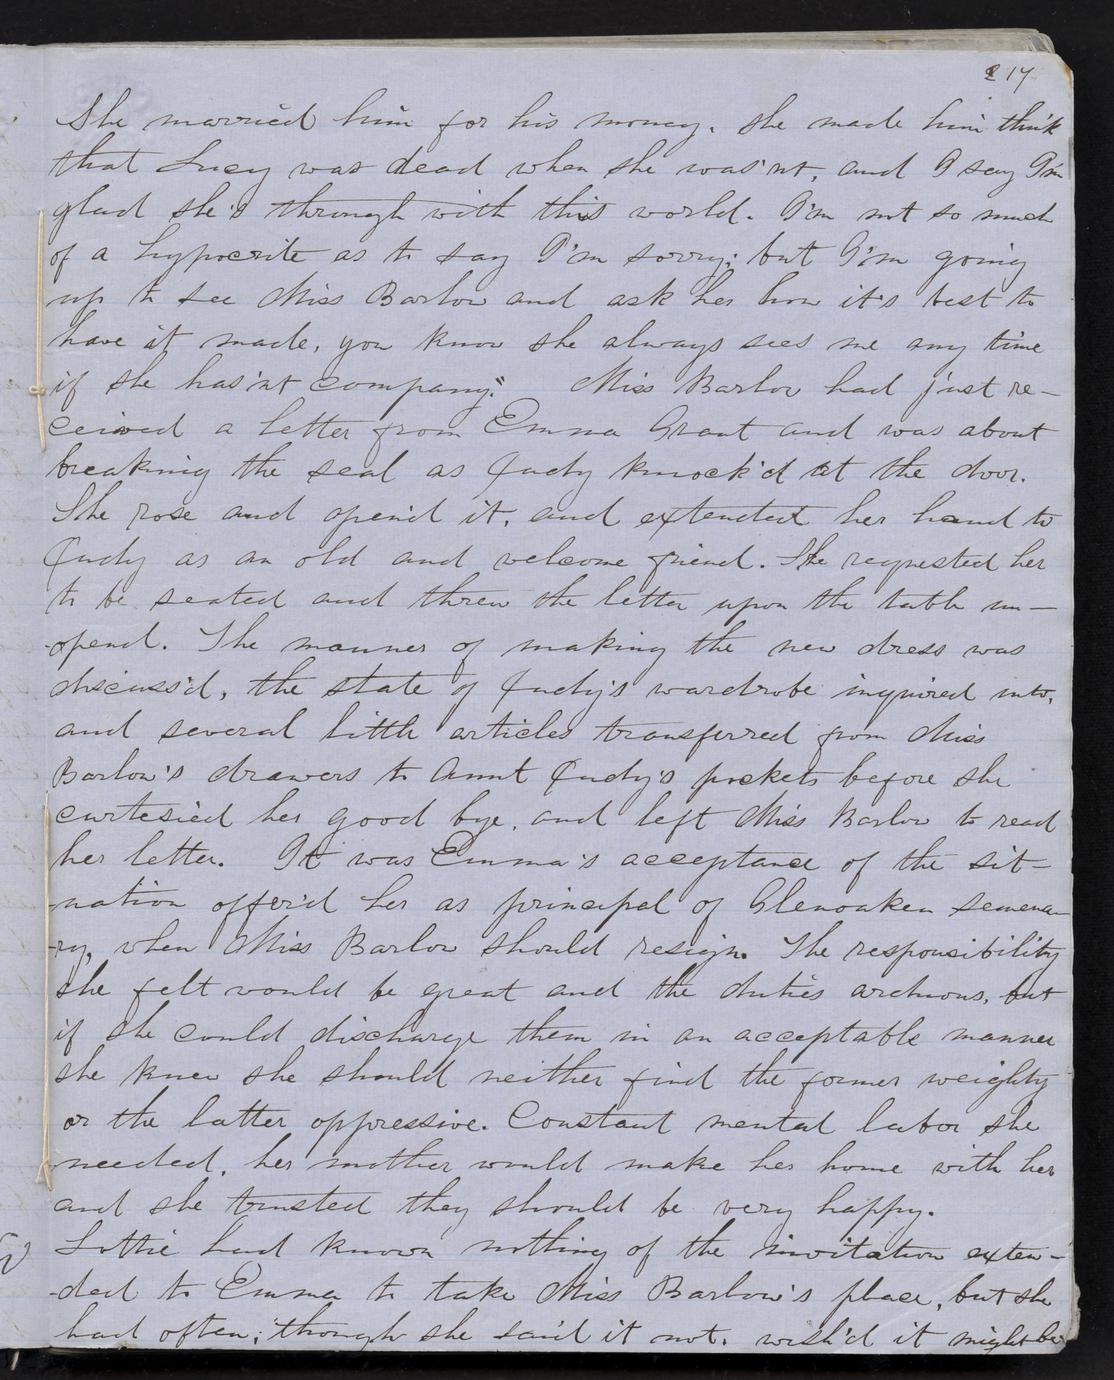 217
She married him for his money. She made him think
that Lucy was dead when she was'nt, and I say I'm
glad she's through with this world. I'm not so much
of a hypocrite as to say I'm sorry; but I'm going
up to see Miss Barlow and ask her how it's best to
have it made, you know she always sees me any time
if she has'nt company." Miss Barlow had just re-
ceived a letter from Emma Grant and was about
breaking the seal as Judy knock'd at the door.
She rose and open'd it, and extended her hand to
Judy as an old and welcome friend. She requested her
to be seated and threw the letter upon the table un-
-opend. The manner of making the new dress was
discuss'd, the state of Judy's wardrobe inquired into,
and several little articles transferred from Miss
Barlow's drawers to Aunt Judy's pockets before she
curtesied her good bye, and left Miss Barlow to read
her letter. It was Emma's acceptance of the sit-
-uation offer'd her as principal of Glenoaken semena-
-ry, when Miss Barlow should resign. The responsibility
she felt would be great and the duties arduous, but
if she could discharge them in an acceptable manner
she knew she should neither find the former weighty
or the latter oppressive. Constant mental labor she
needed, her mother would make her home with her
and she trusted they should be very happy.
Lottie had known nothing of the invitation exten-
-ded to Emma to take Miss Barlow's place, but she
had often, though she said it not, wish'd it might be